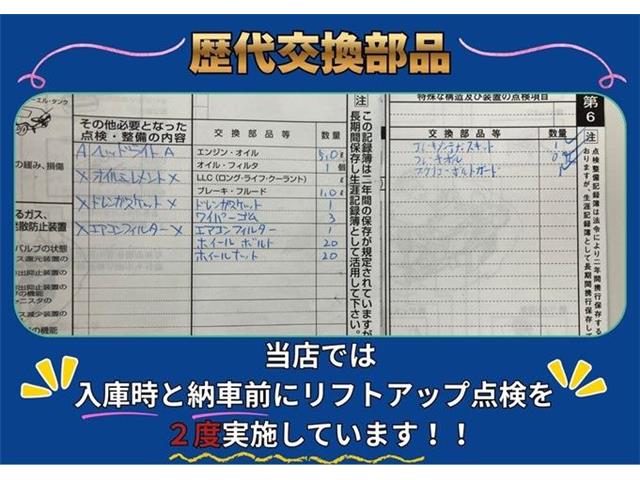 歴代交換部品
エール・タンク
の緩み、損傷
るガス、
発散防止装置
バルブの状態
ス還元装置の
の機能
の機能
その他必要となった
点検・整備の内容
A ヘッドライト A
X オイルエレメント X
X ドレンガスケット X
X エアコンフィルター X
交換部品等 数量
エンジン・オイル 5.0 ℓ
オイル・フィルタ 1 個
LLC(ロング・ライフ・クーラント) ℓ
ブレーキ・フルード 1.0 ℓ
ドレンガスケット 1
ワイパーゴム 3
エアコンフィルター 1
ホイールボルト 20
ホイールナット 20
注 この記録簿は二年間の保存が規定されていますが
長期間保存し生涯記録簿として活用して下さい。
特殊な構造及び装置の点検項目
交換部品等 数量
第6
注 点検整備記録簿は法令により二年間携行保存する
おりますが、生涯記録簿として長期間携行保存して
当店では
入庫時と納車前にリフトアップ点検を
2度実施しています!!